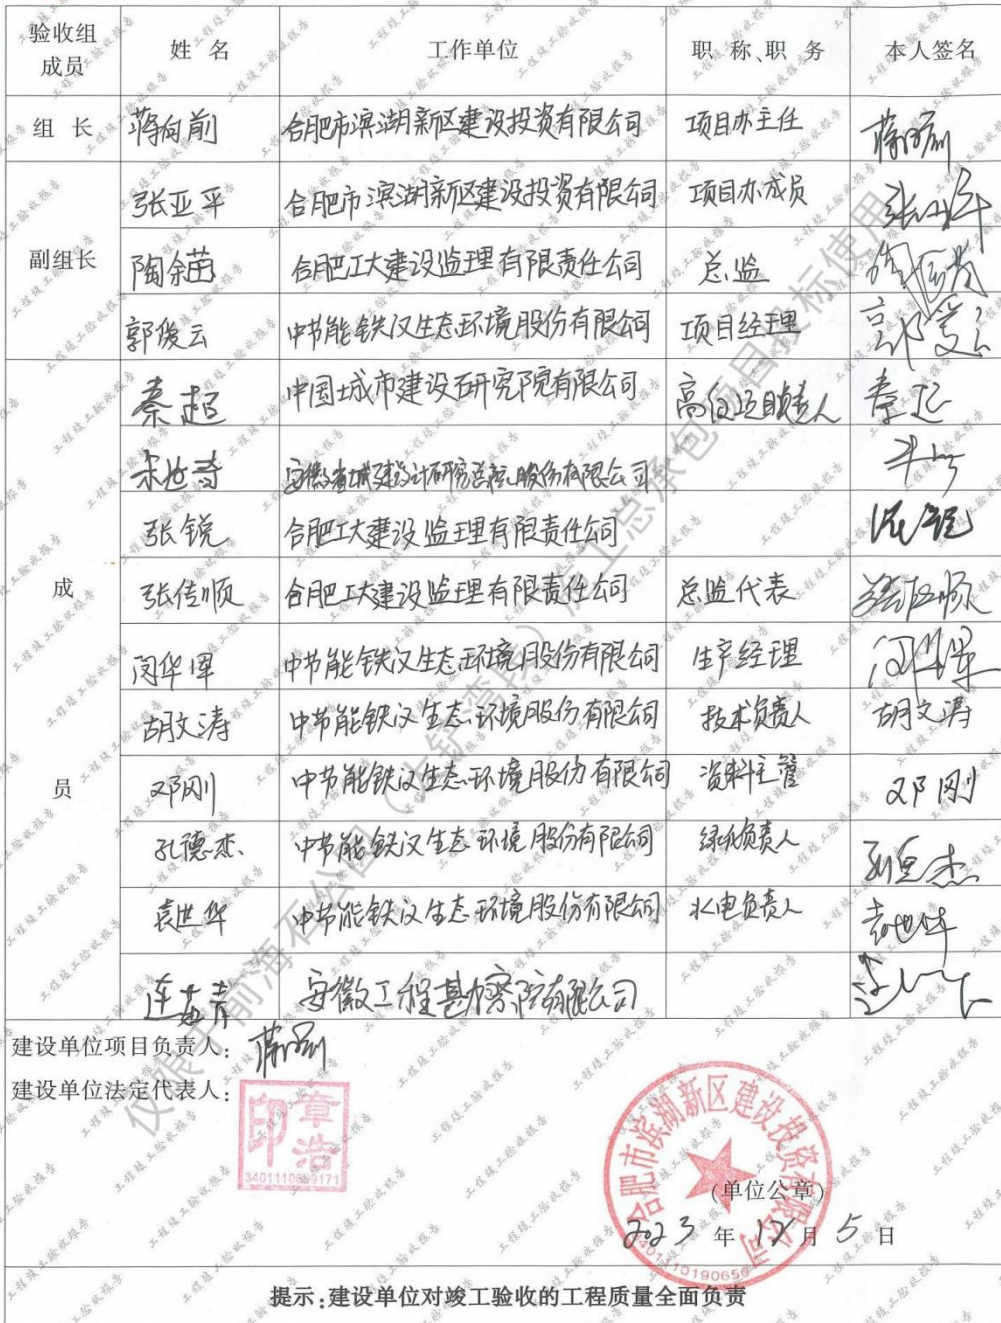 验收组成员 姓名 工作单位 职称、职务 本人签名
组长 蒋向前 合肥市滨湖新区建设投资有限公司 项目办主任 蒋向前
副组长
张亚平 合肥市滨湖新区建设投资有限公司 项目办成员 张亚平
陶余苗 合肥工大建设监理有限责任公司 总监
郭俊云 中节能铁汉生态环境股份有限公司 项目经理
成员
秦超 中国城市建设研究院有限公司 秦超
安徽省城建设计研究总院股份有限公司
张锐 合肥工大建设监理有限责任公司 张锐
张传顺 合肥工大建设监理有限责任公司 总监代表 张传顺
闵华军 中节能铁汉生态环境股份有限公司 生产经理
胡文涛 中节能铁汉生态环境股份有限公司 技术负责人 胡文涛
邓刚 中节能铁汉生态环境股份有限公司 资料主管 邓刚
孔德杰 中节能铁汉生态环境股份有限公司 绿化负责人 孔德杰
袁世华 中节能铁汉生态环境股份有限公司 水电负责人 袁世华
安徽工程勘察院有限公司
建设单位项目负责人: 蒋向前
建设单位法定代表人:
章浩印
合肥市滨湖新区建设投资有限公司
(单位公章)
2023年12月5日
提示:建设单位对竣工验收的工程质量全面负责
工程竣工验收报告